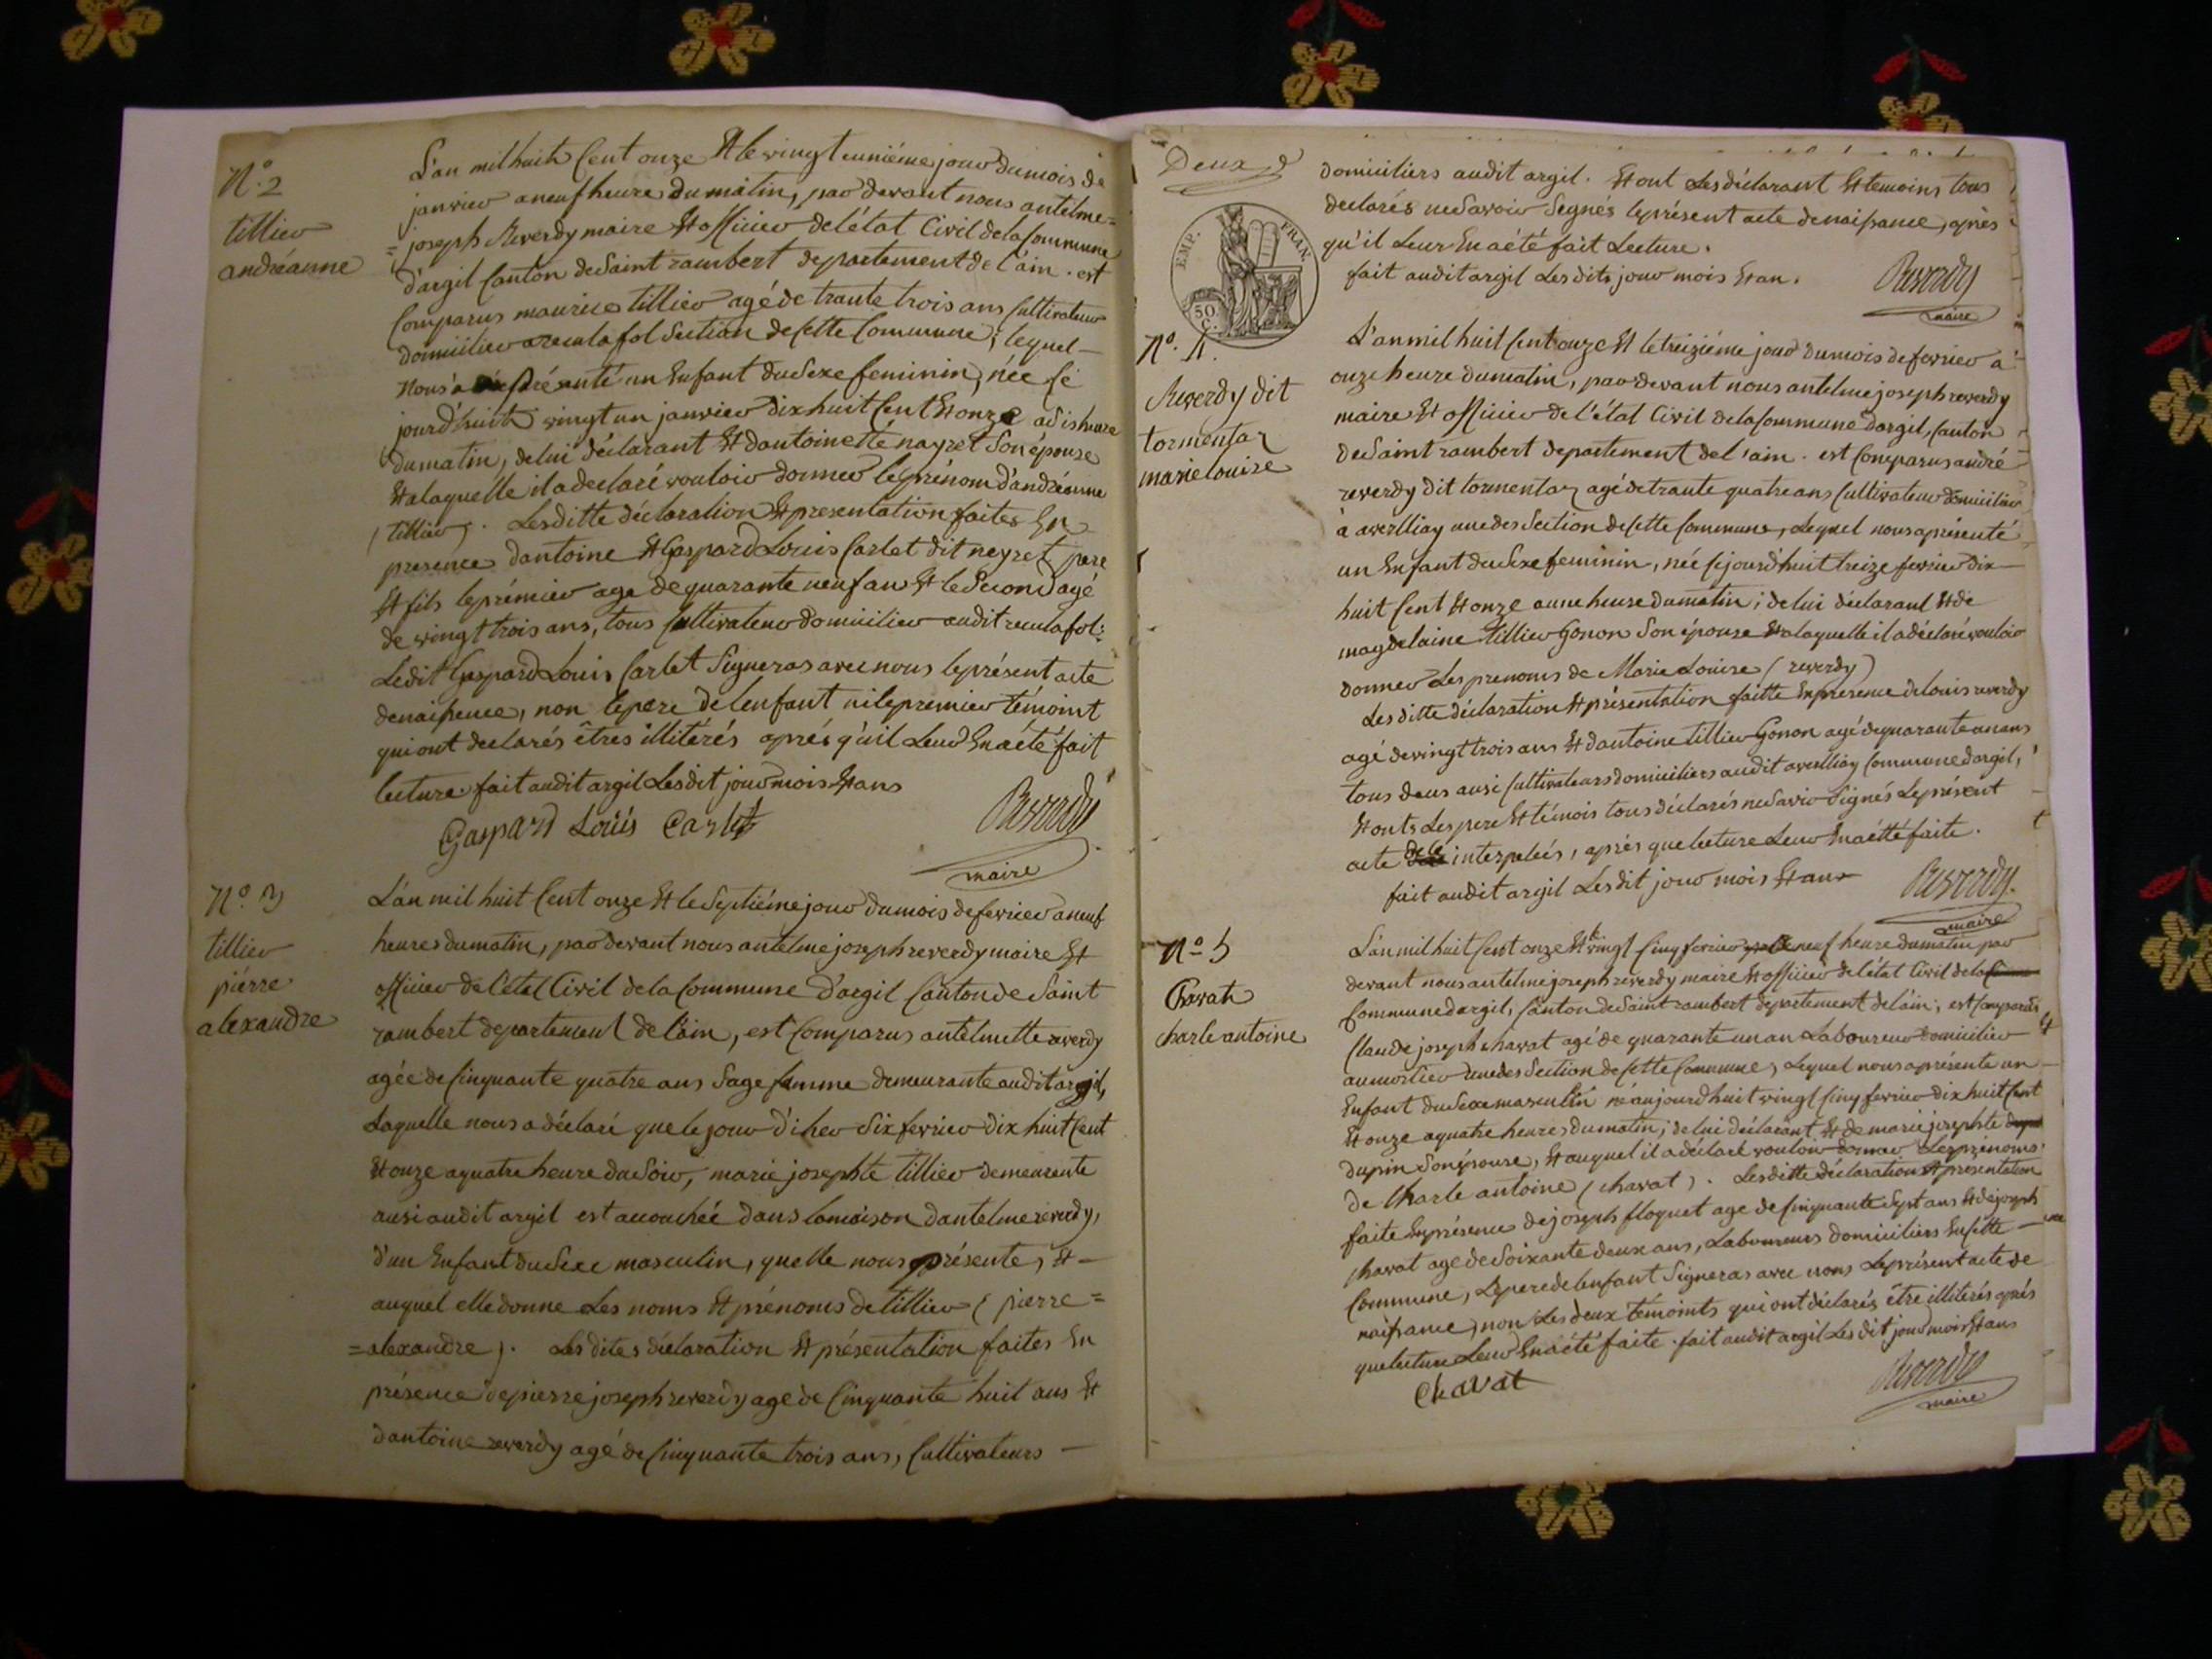 N.o 2
tillier
andréanne
L'an mil huit Cent onze Et le vingt eunième jour du mois de
janvier a neuf heure du matin, par devant nous antelme=
=joseph Reverdy maire Et officier de l'état Civil de la Commune
d'argil Canton de Saint rambert departement de l'ain. est
Comparus maurice tillier agé de trante trois ans Cultivateur
domicilier a reculafol Section de Cette Commune; lequel
Nous a présenté un Enfant du Sexe feminin, née Ce
jourd'huit vingt un janvier dix huit Cent Et onze a dis heure
du matin, de lui déclarant Et d'antoinette nayret Son épouse
Et a laquelle il a declaré vouloir donner le prénom d'andréanne
(tillier). Lesditte déclaration Et presentation faites En
presence d'antoine Et Gaspard Louis Carlet dit neyret pere
Et fils le prémier age de quarante neuf an Et le Second agé
de vingt trois ans, tous Cultivateur domicilier audit reculafol:
Ledit Gaspard Louis Carlet Signeras avec nous le présent acte
de naissence, non le pere de l'enfant ni le premier témoint
qui ont declarés êtres illitérés aprés q'uil Leur En a été fait
lecture fait audit argil Lesdit jour mois Et ans
Gaspard Louis Carlet
Reverdy
maire
N.o 3
tillier
piérre
alexandre
L'an mil huit Cent onze Et le Septiéme jour du mois de fevrier a neuf
heures du matin, par devant nous antelme joseph reverdy maire Et
officier de l'état Civil de la Commune d'argil Canton de Saint
rambert departement de l'ain, est Comparus antelmette reverdy
agée de Cinquante quatre ans Sage femme demeurante audit argil,
Laquelle nous a déclaré que le jour d'iher Six fevrier dix huit Cent
Et onze a quatre heure du Soir, marie josephte tillier demeurente
ausi audit argil est accouchée dans la maison d'antelme reverdy,
d'un Enfant du Sexe masculin, quelle nous présente, Et
auquel elle donne Les noms Et prénoms de tillier (pierre=
=alexandre). Les dites déclaration Et présentation faites En
présence de pierre joseph reverdy age de Cinquante huit ans Et
d'antoine reverdy agé de Cinquante trois ans, Cultivateurs
Deux
EMP. FRAN.
50.
C.
domiciliers audit argil. Et ont Les déclarant Et temoins tous
declarés ne Savoir Segnés le présent acte de naissance, après
qu'il Leur En a été fait Lecture.
fait audit argil Lesdits jour mois Et an.
Reverdy
maire
No. 4.
Reverdy dit
tormentaz
marie louise
L'an mil huit Cent onze Et le treiziéme jour du mois de fevrier a
onze heure du matin, par devant nous antelme joseph reverdy
maire Et officier de l'état Civil de la Commune d'argil, Canton
de Saint rambert departement de l'ain. est Comparus andré
reverdy dit tormentaz agé de trante quatre ans Cultivateur domicilier
à averlliaz une des Section de Cette Commune, Lequel nous a présenté
un Enfant du Sexe feminin, née Cejourd'huit treize fevrier dix
huit Cent Et onze a une heure du matin; de lui déclarant Et de
magdelaine tillier Gonon Son épouse Et a laquelle il a déclaré vouloir
donner Les prenoms de Marie Louise (reverdy)
Lesditte déclaration Et présentation faitte En presence de louis reverdy
agé de vingt trois ans Et d'antoine tillier Gonon agé de quarante un ans
tous deus ausi Cultivateurs domiciliers audit averlliaz Commune d'argil,
Et onts Les pere Et témois tous déclarés ne Savir Signés Le présent
acte de ce interpelés, après que lecture Leur En a étté faite.
fait audit argil Lesdit jour mois Et an
Reverdy.
maire
No 5
Chavat
charle antoine
L'an mil huit Cent onze Et vingt Cinq fevrier neuf heure du matin par
devant nous antelme joseph reverdy maire Et officier de l'état Civil de la
Commune d'argil, Canton de Saint rambert departement de l'ain; est Comparus
Claude joseph chavat agé de quarante un an Laboureur domicilier
au mortier une des Section de Cette Commune, Lequel nous a présente un
Enfant du Sexe masculin né aujourd'huit vingt Cinq fevrier dix huit Cent
Et onze a quatre heures du matin; de lui déclarant Et de marie josephte
dupin Son épouse, Et auquel il a déclaré vouloir donner Les prénoms
de Charle antoine (chavat). Lesditte déclaration Et presentation
faite En présence de joseph floquet age de Cinquante Sept ans Et de joseph
chavat age de Soixante deux ans, Laboureurs domiciliers En Cette
Commune, Le pere de l'enfant Signeras avec nous Le présent acte de
naissance, non Les deux témoints qui ont déclarés être illitérés après
que lecture Leur En a été faite. fait audit argil Les dit jour mois Et ans
Chavat
Reverdy
maire